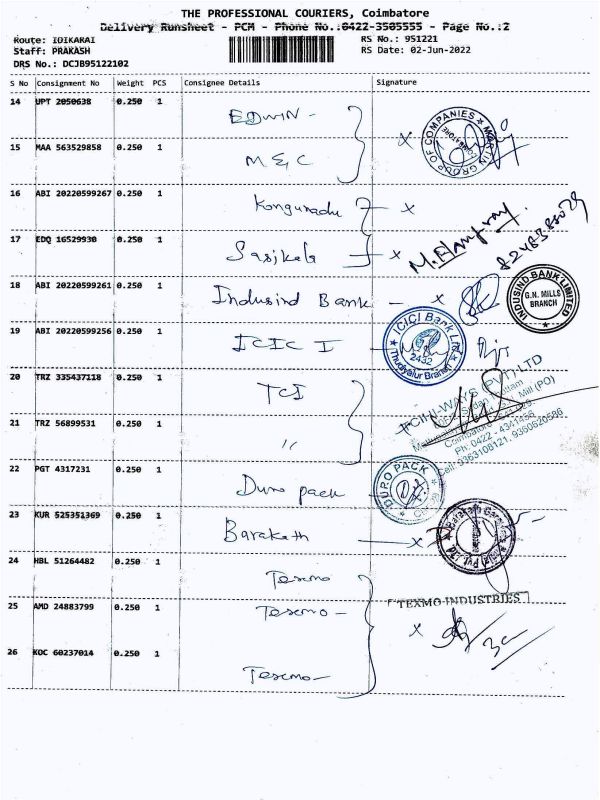 THE PROFESSIONAL COURIERS, Coimbatore
Delivery Runsheet - PCM - Phone No.:0422-3505555 - Page No.:2
Route: IDIKARAI RS No.: 951221
Staff: PRAKASH RS Date: 02-Jun-2022
DRS No.: DCJB95122102
S No Consignment No Weight PCS Consignee Details Signature
14 UPT 2050638 0.250 1 EDWIN -
MARTIN GROUP OF COMPANIES COIMBATORE
15 MAA 563529858 0.250 1 M & C x
16 ABI 20220599267 0.250 1 Kongunadu x
17 EDQ 16529930 0.250 1 Sasikala x
18 ABI 20220599261 0.250 1 Indusind Bank - x
INDUSIND BANK LIMITED G.N. MILLS BRANCH
19 ABI 20220599256 0.250 1 ICICI
ICICI Bank Ltd 2432 Thudiyalur Branch
20 TRZ 335437118 0.250 1 TCI
21 TRZ 56899531 0.250 1 "
Ph: 0422 - 4341456
Cell: 9363108121, 9360620586
22 PGT 4317231 0.250 1 Duro pack
DURO PACK
23 KUR 525351369 0.250 1 Barakath x
24 HBL 51264482 0.250 1 Texmo
TEXMO INDUSTRIES
25 AMD 24883799 0.250 1 Texmo - x
26 KOC 60237014 0.250 1 Texmo -